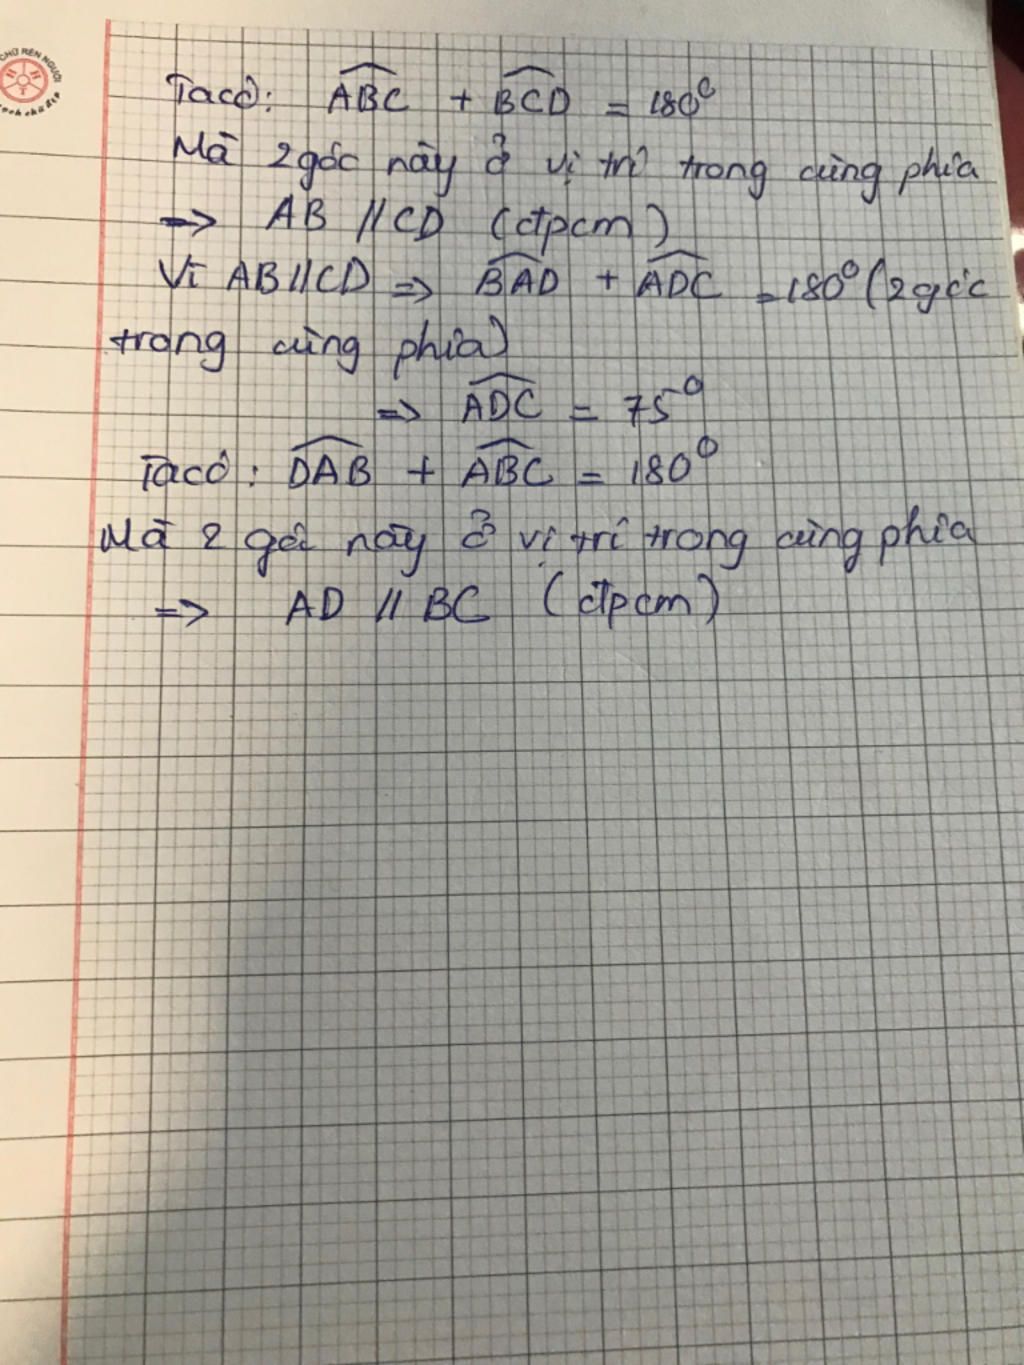 CHỮ RÈN NGƯỜI
Ta có: ABC + BCD = 180⁰
Mà 2 góc này ở vị trí trong cùng phía
=> AB // CD (đpcm)
Vì AB // CD => BAD + ADC = 180⁰ (2 góc
trong cùng phía)
=> ADC = 75⁰
Ta có: DAB + ABC = 180⁰
Mà 2 góc này ở vị trí trong cùng phía
=> AD // BC (đpcm)